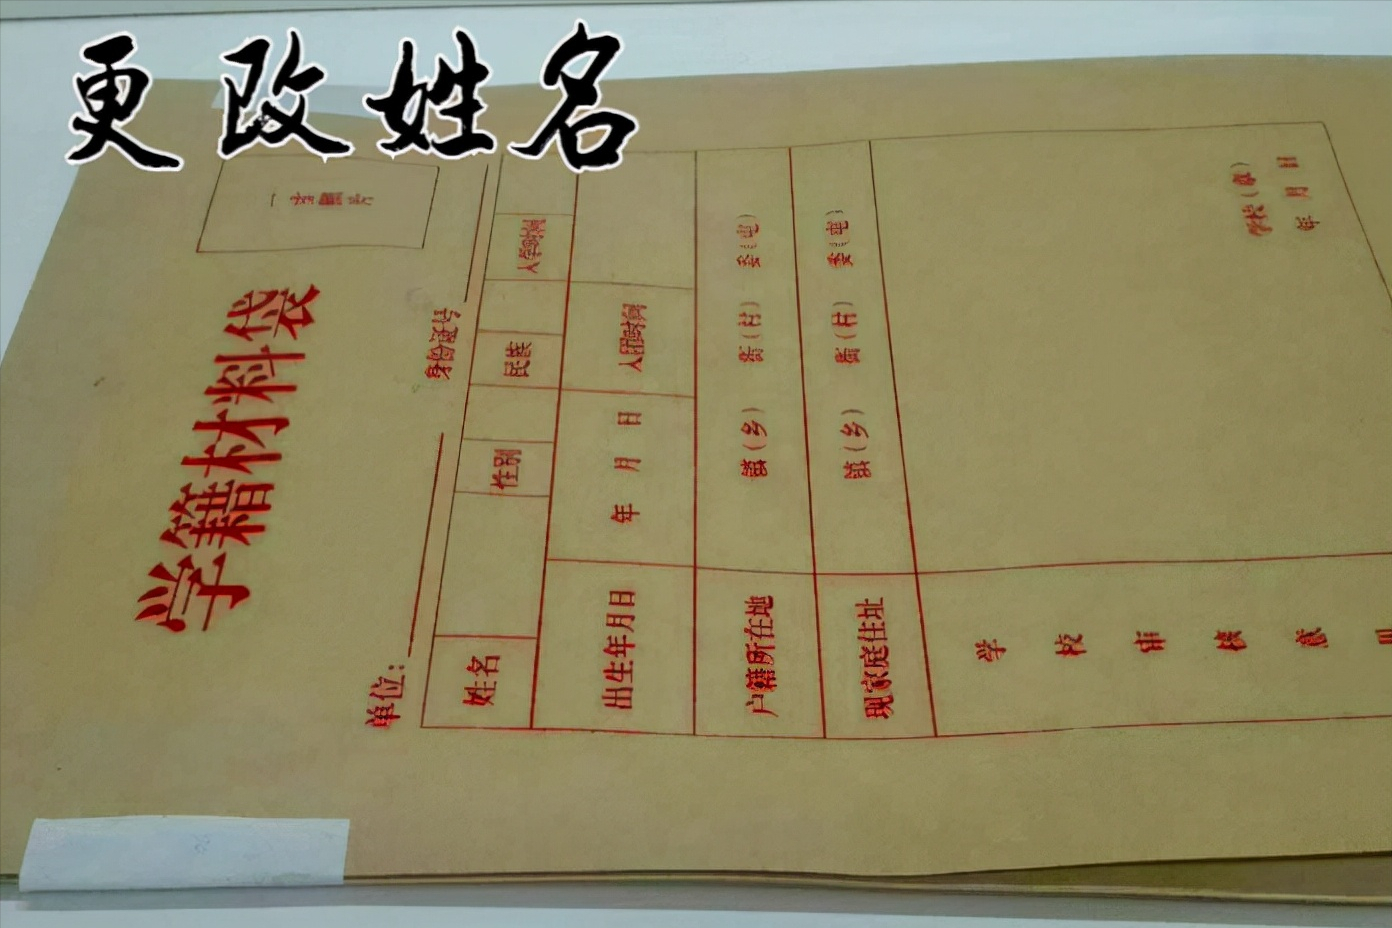 更改姓名
一寸照片
学籍材料袋
单位:
身份证号
姓名
性别
民族
入学时间
出生年月日
年 月 日
入团时间
户籍所在地
镇(乡) 街(村) 委(屯)
现家庭住址
镇(乡) 街(村) 委(屯)
学校审核意见
学校(章)
年 月 日